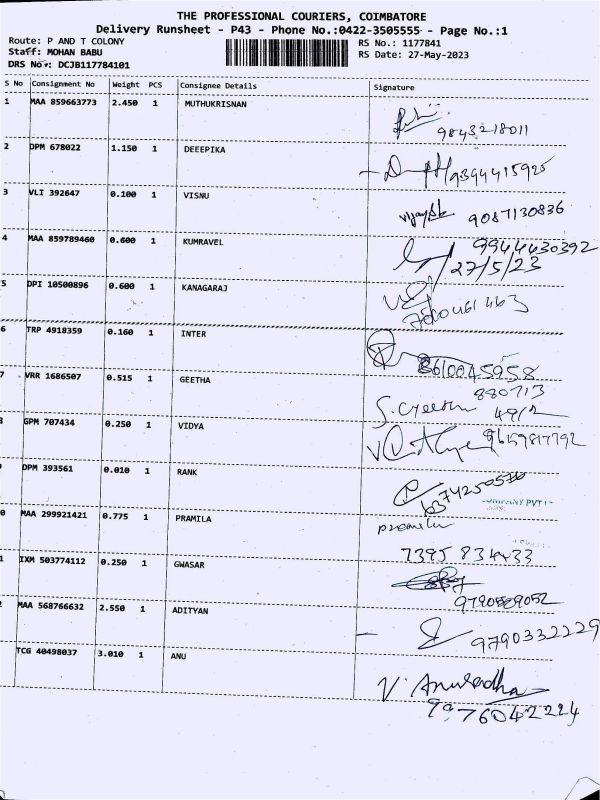 THE PROFESSIONAL COURIERS, COIMBATORE
Delivery Runsheet - P43 - Phone No.:0422-3505555 - Page No.:1
Route: P AND T COLONY
Staff: MOHAN BABU
DRS No.: DCJB117784101
RS No.: 1177841
RS Date: 27-May-2023
S No Consignment No Weight PCS Consignee Details Signature
1 MAA 859663773 2.450 1 MUTHUKRISNAN
9843218011
2 DPM 678022 1.150 1 DEEEPIKA
9394415925
3 VLI 392647 0.100 1 VISNU
9087130836
4 MAA 859789460 0.600 1 KUMRAVEL
9944430392
27/5/23
5 DPI 10500896 0.600 1 KANAGARAJ
6 TRP 4918359 0.160 1 INTER
8610045958
7 VRR 1686507 0.515 1 GEETHA
880713
S. Geetha
8 GPM 707434 0.250 1 VIDYA
DPM 393561 0.010 1 RANK
PVT
0 MAA 299921421 0.775 1 PRAMILA
7395 834433
1 IXM 503774112 0.250 1 GWASAR
9790589052
2 MAA 568766632 2.550 1 ADITYAN
9790332229
TCG 40498037 3.010 1 ANU
V. Anuradha
9976042224